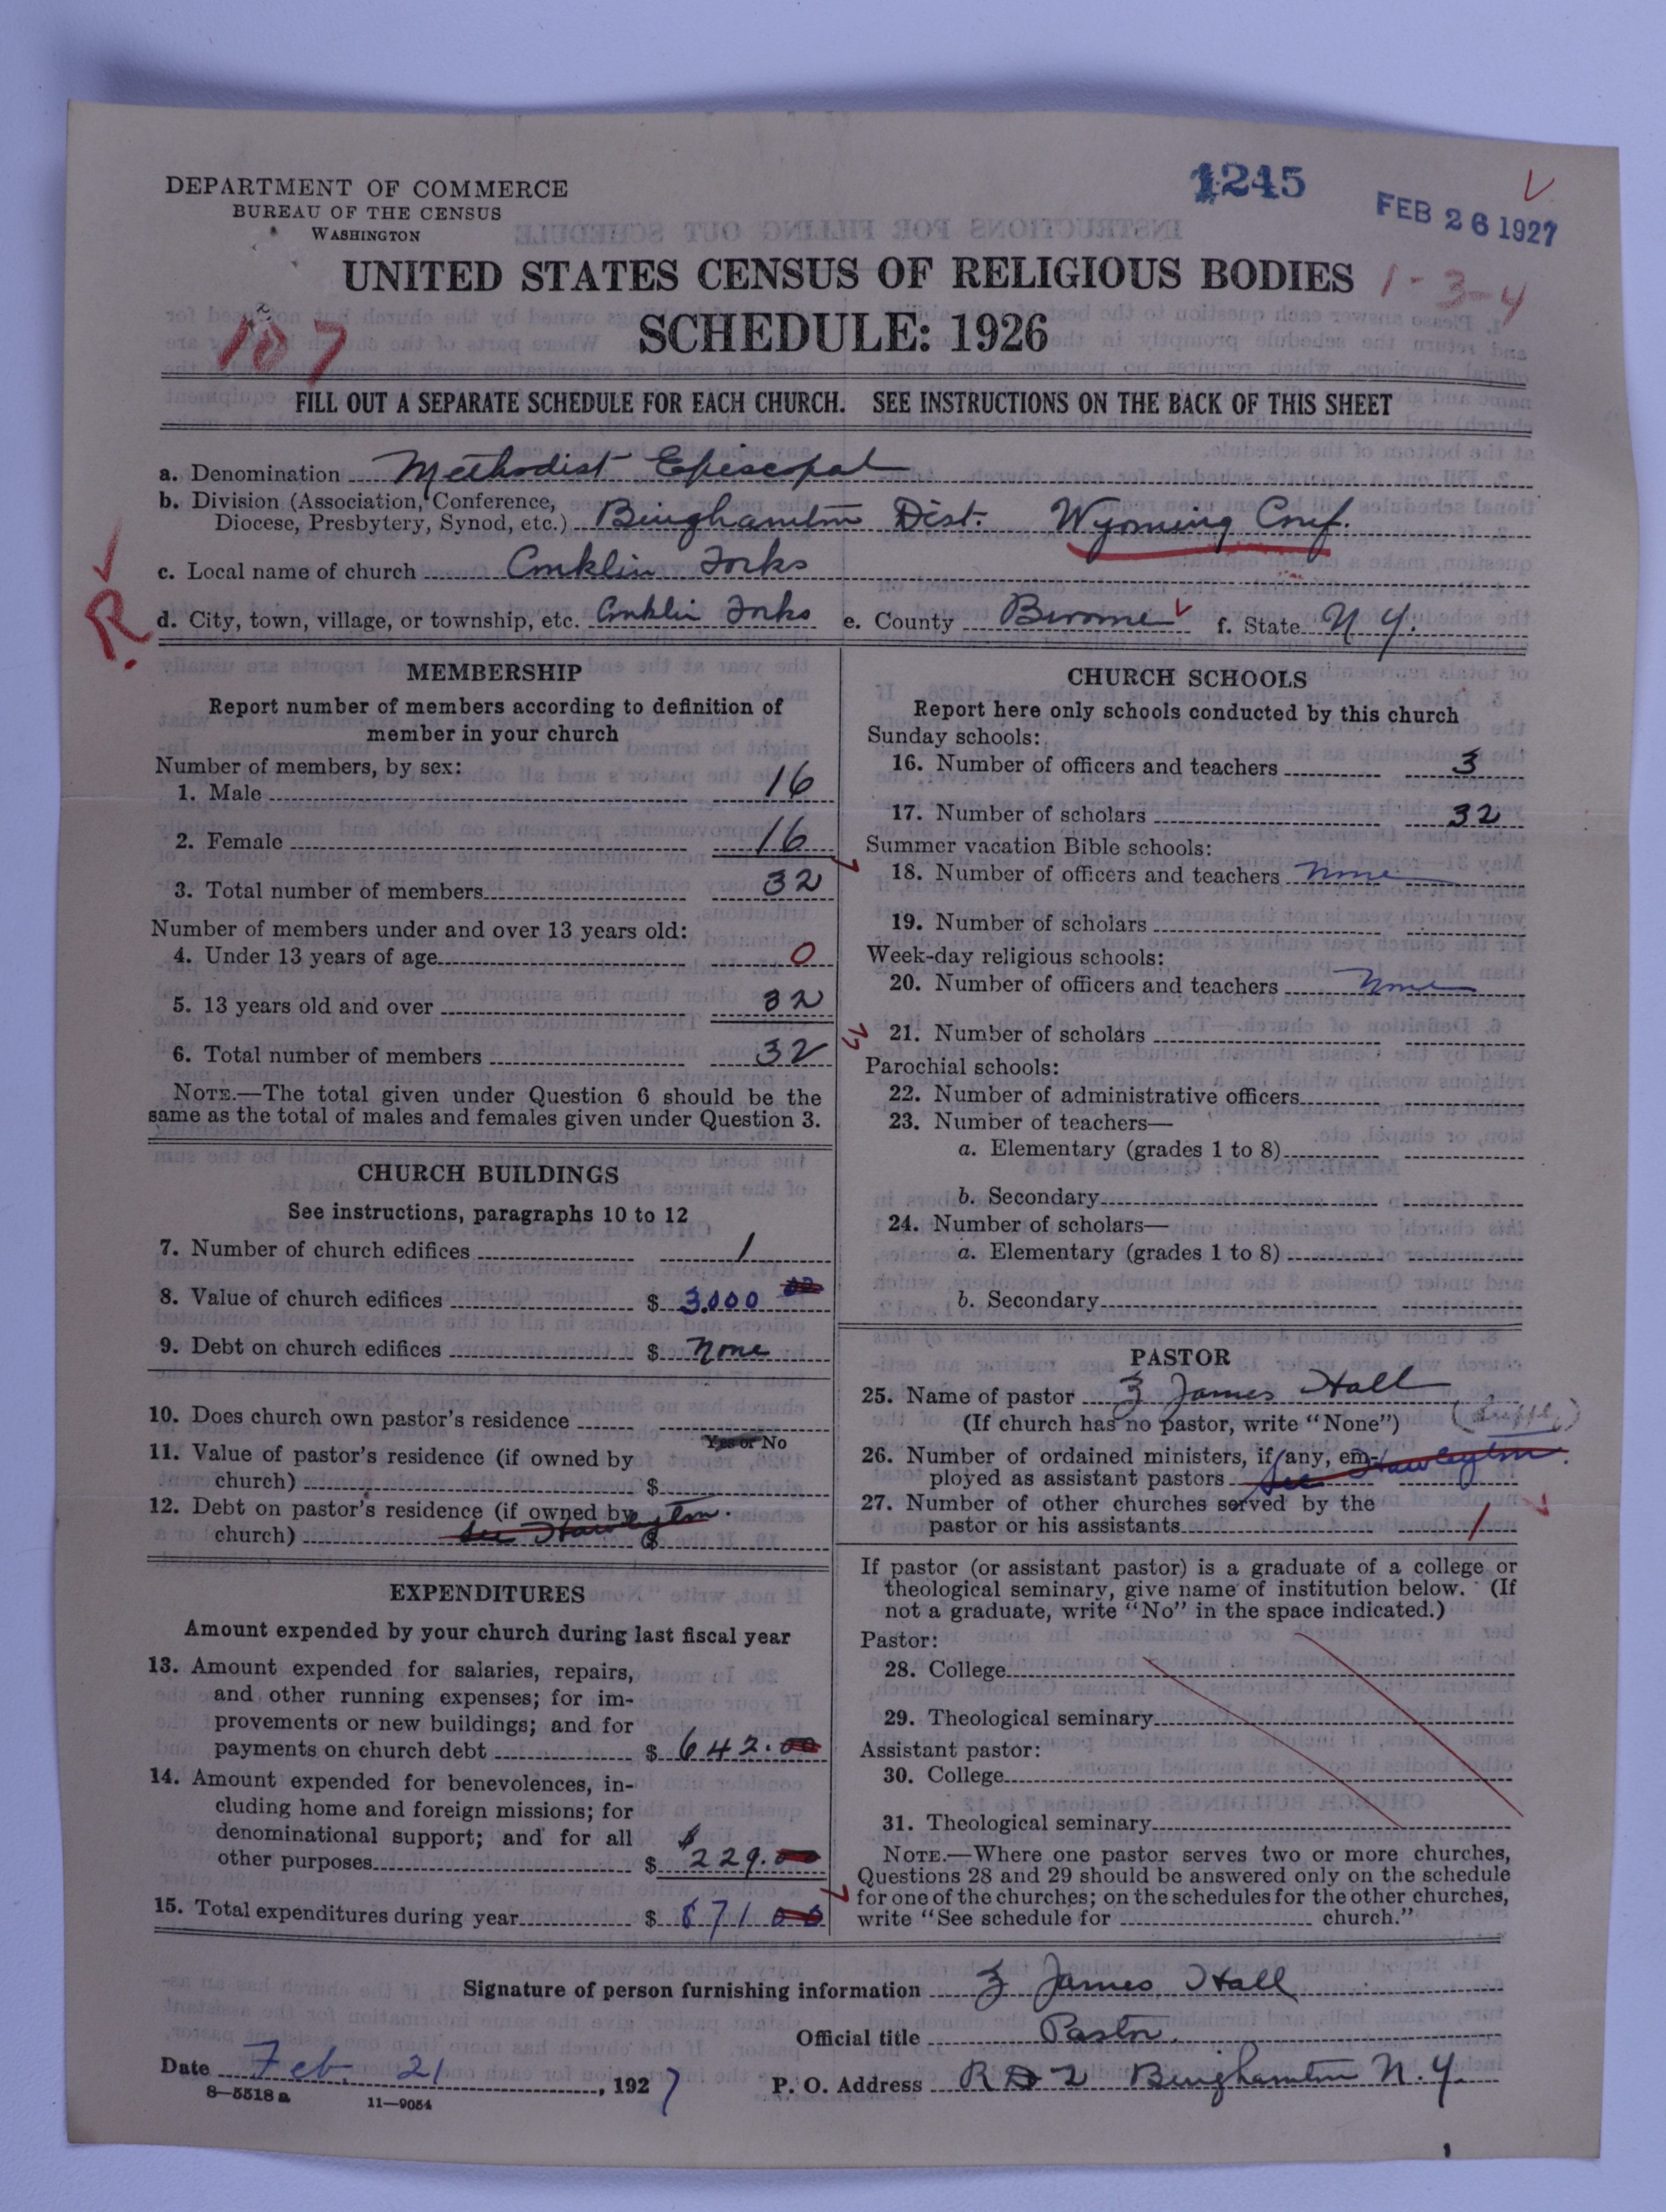 DEPARTMENT OF COMMERCE
BUREAU OF THE CENSUS
WASHINGTON
1245
FEB 26 1927
UNITED STATES CENSUS OF RELIGIOUS BODIES
1-3-4
107
SCHEDULE: 1926
FILL OUT A SEPARATE SCHEDULE FOR EACH CHURCH. SEE INSTRUCTIONS ON THE BACK OF THIS SHEET
a. Denomination Methodist Episcopal
b. Division (Association, Conference,
Diocese, Presbytery, Synod, etc.) Binghamton Dist. Wyoming Conf.
c. Local name of church Conklin Forks
R
d. City, town, village, or township, etc. Conklin Forks e. County Broome f. State N Y.
MEMBERSHIP
Report number of members according to definition of
member in your church
Number of members, by sex:
1. Male 16
2. Female 16
3. Total number of members 32
Number of members under and over 13 years old:
4. Under 13 years of age 0
5. 13 years old and over 32
6. Total number of members 32
NOTE.—The total given under Question 6 should be the
same as the total of males and females given under Question 3.
CHURCH BUILDINGS
See instructions, paragraphs 10 to 12
7. Number of church edifices 1
8. Value of church edifices $ 3000 00
9. Debt on church edifices $ None
10. Does church own pastor's residence
Yes or No
11. Value of pastor's residence (if owned by
church) $
12. Debt on pastor's residence (if owned by
church) see Hawleyton. $
EXPENDITURES
Amount expended by your church during last fiscal year
13. Amount expended for salaries, repairs,
and other running expenses; for im-
provements or new buildings; and for
payments on church debt $ 642.00
14. Amount expended for benevolences, in-
cluding home and foreign missions; for
denominational support; and for all $
other purposes $ 229.00
15. Total expenditures during year $ 871 00
CHURCH SCHOOLS
Report here only schools conducted by this church
Sunday schools:
16. Number of officers and teachers 3
17. Number of scholars 32
Summer vacation Bible schools:
18. Number of officers and teachers None
19. Number of scholars
Week-day religious schools:
20. Number of officers and teachers None
21. Number of scholars
Parochial schools:
22. Number of administrative officers
23. Number of teachers—
a. Elementary (grades 1 to 8)
b. Secondary
24. Number of scholars—
a. Elementary (grades 1 to 8)
b. Secondary
PASTOR
25. Name of pastor Z James Hall
(If church has no pastor, write "None") (Supply)
26. Number of ordained ministers, if any, em-
ployed as assistant pastors See Hawleyton.
27. Number of other churches served by the
pastor or his assistants 1
If pastor (or assistant pastor) is a graduate of a college or
theological seminary, give name of institution below. (If
not a graduate, write "No" in the space indicated.)
Pastor:
28. College
29. Theological seminary
Assistant pastor:
30. College
31. Theological seminary
NOTE.—Where one pastor serves two or more churches,
Questions 28 and 29 should be answered only on the schedule
for one of the churches; on the schedules for the other churches,
write "See schedule for church."
Signature of person furnishing information Z James Hall
Official title Pastor.
Date Feb. 21, 1927 P. O. Address R D 2 Binghamton N. Y.
8—5518 a 11—9054